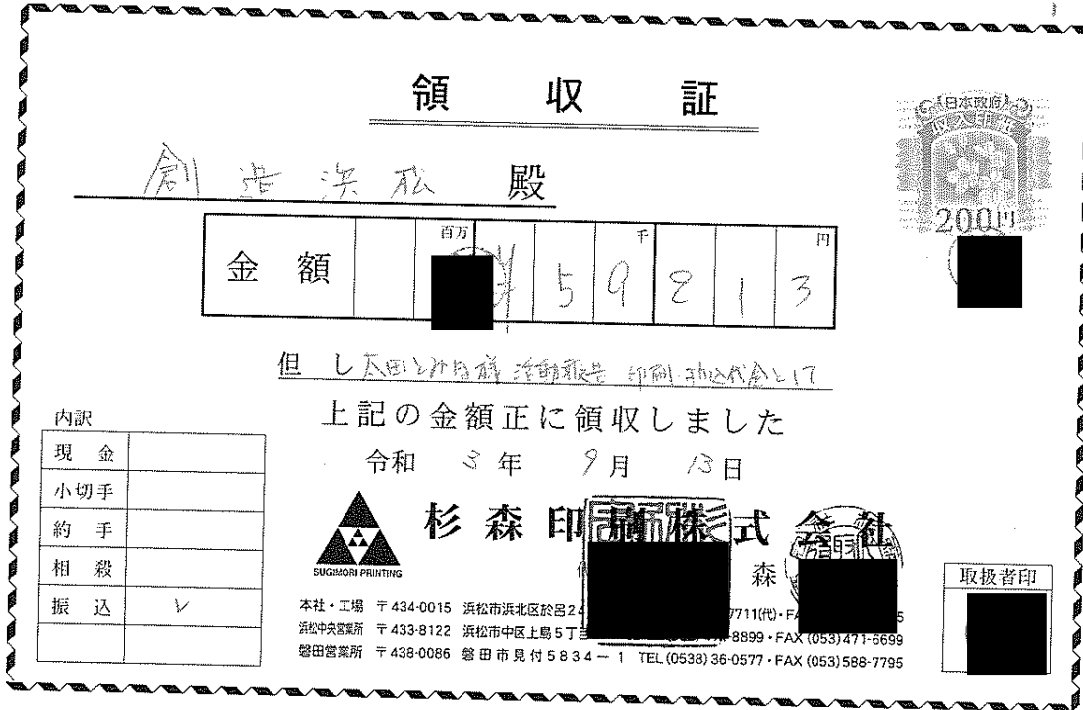 領収証
日本政府
収入印紙
200円
創造浜松 殿
金額 百万 千 円
¥59213
但し 太田とみ様 活動報告 印刷・折込代金として
上記の金額正に領収しました
令和 3年 9月 13日
内訳
現金
小切手
約手
相殺
振込 レ
杉森印刷株式会社
SUGIMORI PRINTING
森
取扱者印
本社・工場 〒434-0015 浜松市浜北区於呂2 7711(代)・FA 5
浜松中央営業所 〒433-8122 浜松市中区上島5丁 8899・FAX (053)471-6699
磐田営業所 〒438-0086 磐田市見付5834-1 TEL (0538) 36-0577・FAX (053) 588-7795